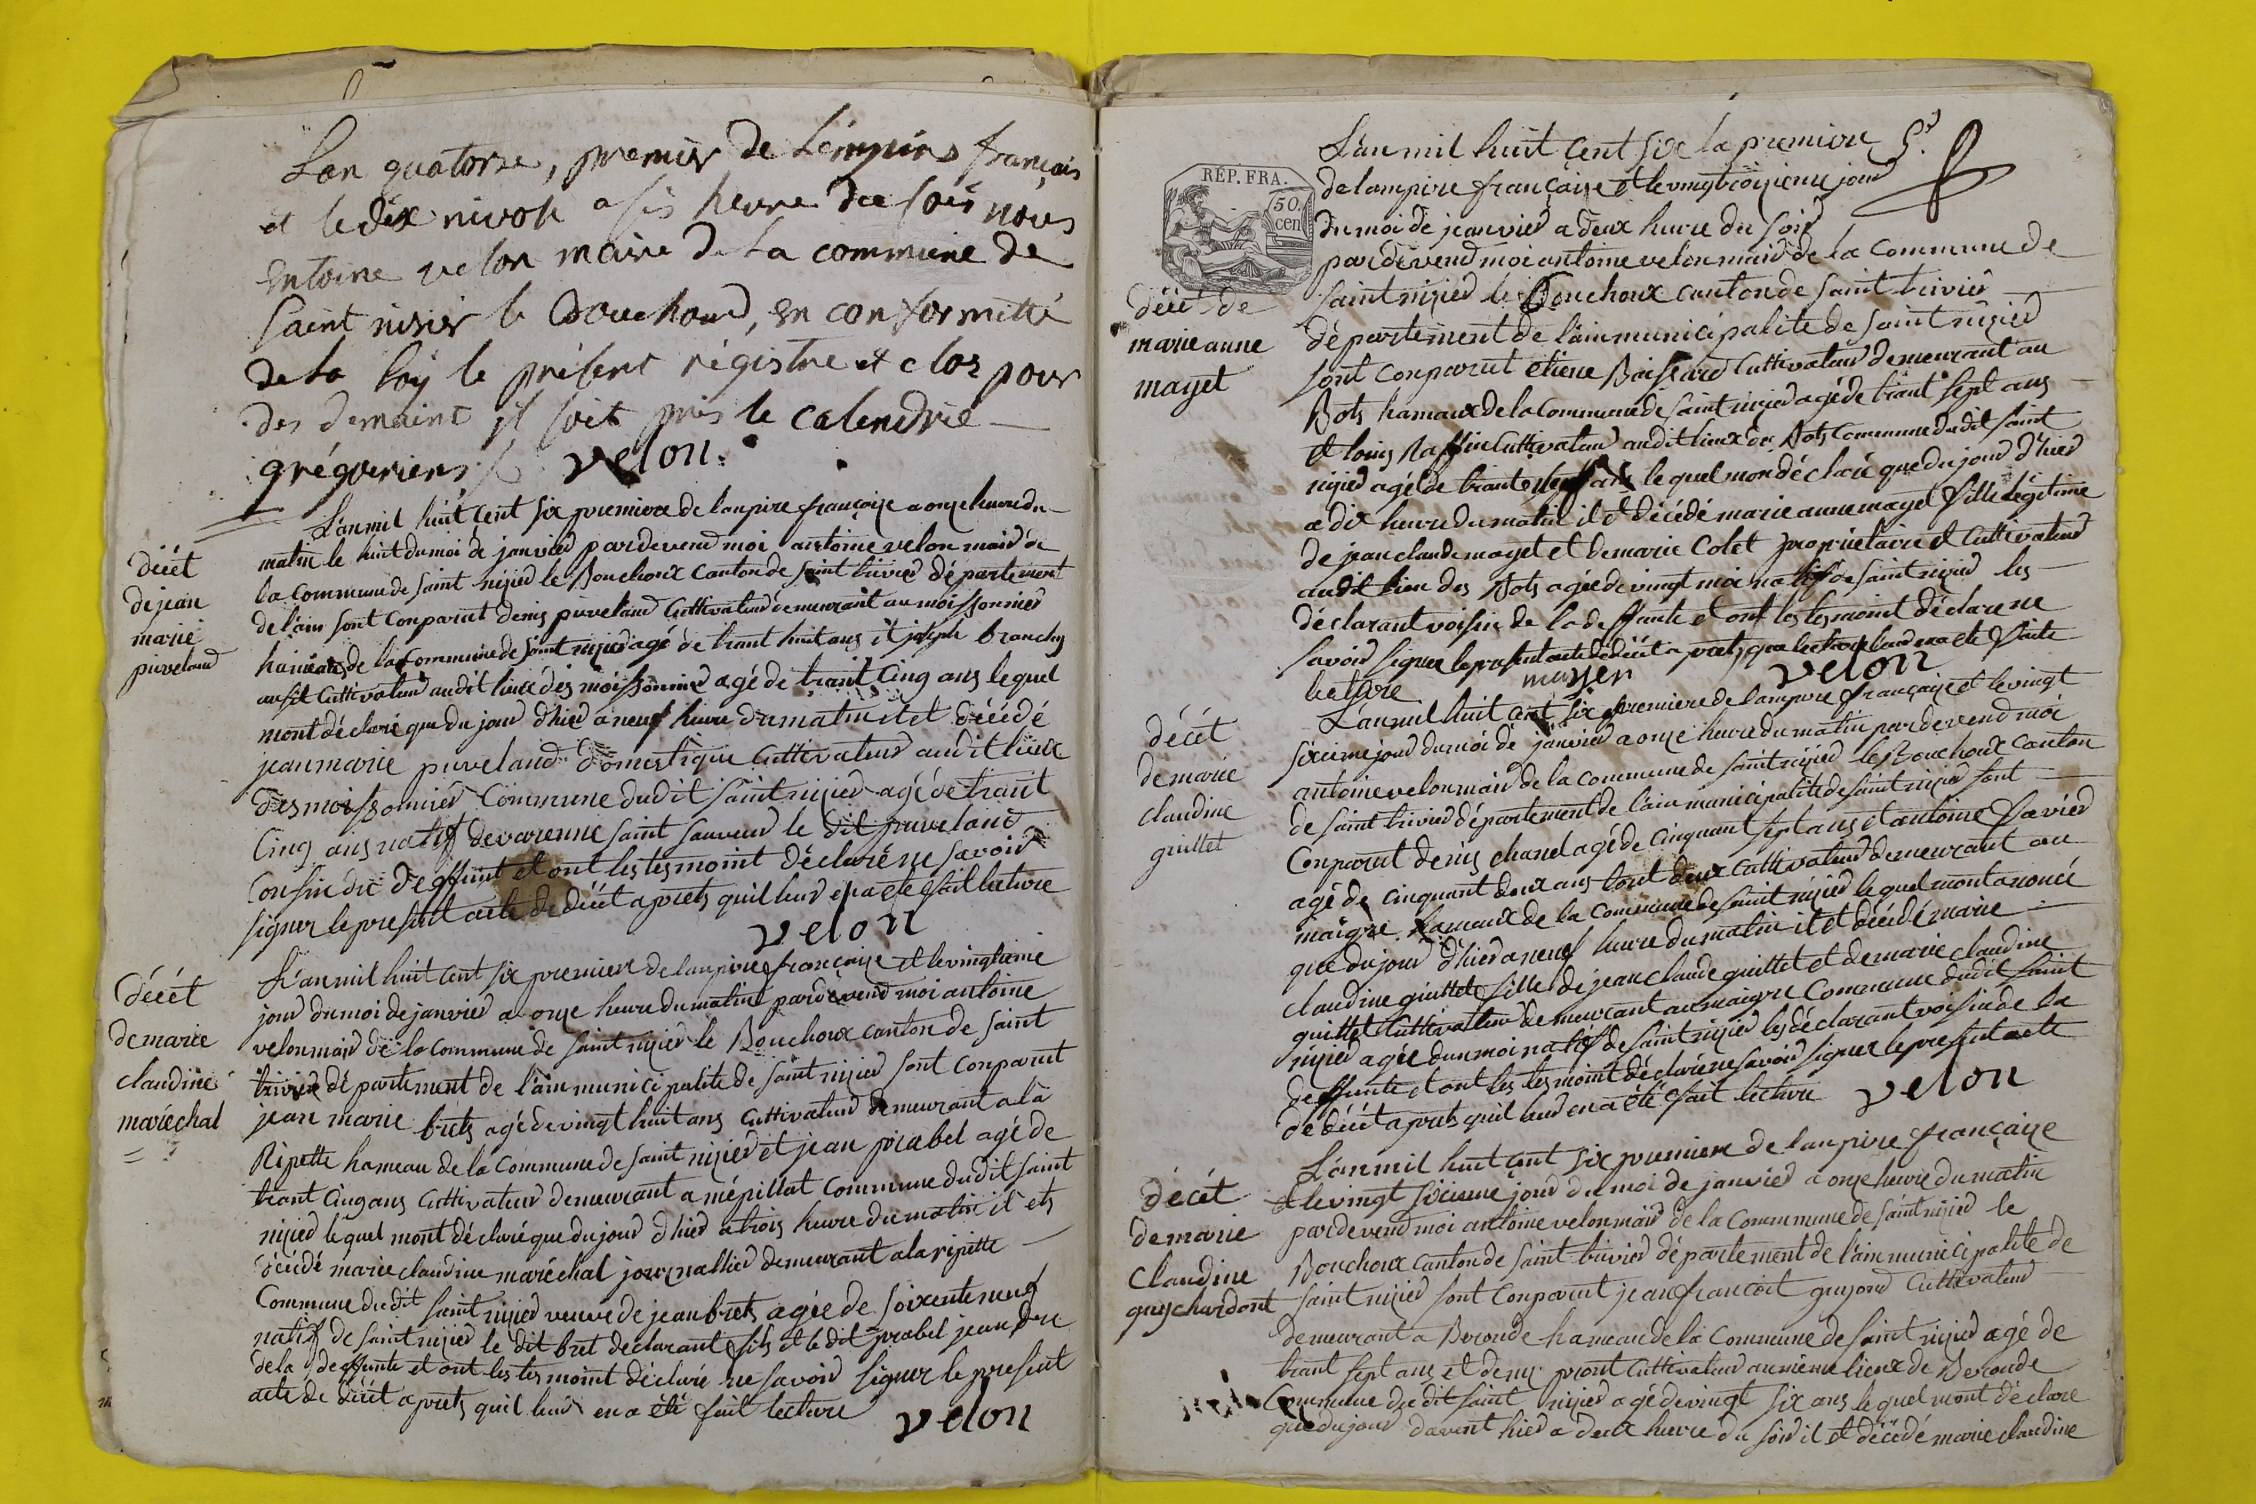 Lan quatorze, premier de Lémpire français
et le dix nivose a six heure du soir nous
entoine velon maire de la commune de
saint nisier le Bouchoux, en conformitté
de la loÿ le présent régistre et clos pour
des demaint il soit pris le calendrié
grégoriens velon.
L'an mil huit cent six premiere de lanpire françaize a onze heure du
matin le huit du moi de janvier pardevend moi antoine velon maid de
la Commune de saint nizied le Bouchoux Canton de saint trivied département
de l'ain sont Conparut denis puveland Cuttivateur demeurant au moissonnied
hameau de la Commune de saint nizied agé de trant huit ans et joseph branchy
ausit Cuttivateur audit lieux des moissonnied agé de trant Cinq ans le quel
mont déclaré que du jour d'hier a neuf heure du matin il et décédé
jean marie puveland domestique Cuttivateur audit lieux
des moissonnied Commune dudit saint nizied agé de trant
Cinq ans natif de varenne saint sauveur le dit puveland
Consin du deffunt et ont les tesmoint déclaré ne savoir
signer le present acte de décét aprets quil leur en a eté fait lecture
velon
décét
de jean
marie
puveland
L'an mil huit cent six premiere de lanpire françaize et le vingtieme
jour du moi de janvier a onze heure du matin pardevend moi antoine
velon maid de la Commune de saint nizied le Bouchoux canton de saint
trivied département de l'ain municipalite de saint nizied sont conparut
jean marie brets agé de vingt huit ans Cuttivateur demeurant a là
Ripette hameau de la Commune de saint nizied et jean prabel agé de
trant Cinq ans Cuttivateur demeurant a mépillat Commune dudit saint
nizied le quel mont déclaré que du jour d'hier a trois heure du matin il ets
décédé marie claudine maréchal journallied demeurant a la ripette
Commune dudit saint nizied veuve de jean brets agée de soixente neuf
natif de saint nizied le dit bret declarant fils et le dit prabel jeandre
de la deffunte et ont les tesmoint déclaré ne savoir signer le present
acte de décét aprets quil leur en a été fait lecture
velon
décét
de marie
claudine
maréchal
RÉP. FRA.
50.
cen
L'an mil huit cent six la premiere
de lanpire françaize et le vingtroizieme jour
du moi de jeanvier a deux heure du soir
pardevend moi antoine velon maid de la Commune de
saint nizied le Bouchoux canton de saint trivier
département de l'ain municipalite de saint nizied
sont conparut étiene Boissard Cuttivateur demeurant au
Bots hamaux de la Commune de saint nizied agé de trant sept ans
et louis Raffin Cuttivateur audit lieux des Bots Commune dudit saint
nizied agé de trante ans le quel mon déclaré que du jour d'hier
a dix heure du matin il et décédé marie anne mayet fille légitime
de jean claude mayet et de marie Colet propriétaire et Cuttivateur
audit lieu des Bots agée de vingt moi natif de saint nizied les
déclarant voisin de la deffunte et ont les tesmoint déclare ne
savoir signer le present acte de décét aprets que lecture leur en a eté faite
lecture velon
décét de
marie anne
mayet
L'an mil huit cent six premiere de lanpire françaize et le vingt
sixieme jour du moi de janvier a onze heure du matin pardevend moi
antoine velon maid de la Commune de saint nizied le Bouchoux Canton
de saint trivied département de l'ain municipalite de saint nizied sont
Conparut denis chanel agé de Cinquant sept ans et antoine favier
agé de cinquant deux ans tout deux Cuttivateur demeurant au
maigre hamaux de la Commune de saint nizied le quel mont anoncé
que du jour d'hier a neuf heure du matin il et décédé marie
claudine guillet fille de jean claude guillet et de marie claudine
guillet Cuttivateur demeurant au maigre Commune dudit saint
nizied agée d'un moi natif de saint nizied les déclarant voisin de la
deffunte et ont les tesmoint déclaré ne savoir signer le present acte
de décét aprets quil leur en a été fait lecture velon
décét
de marie
claudine
guillet
L'an mil huit cent six premiere de lanpire françaize
et le vingt sixieme jour du moi de janvier a onze heure du matin
pardevend moi antoine velon maid de la Commune de saint nizied le
Bouchoux canton de saint trivied département de l'ain municipalite de
saint nizied sont Conparut jean francoit guyond Cuttivateur
demeurant a Beronde hameau de la Commune de saint nizied agé de
trant sept ans et denis pront Cuttivateur au même lieux de Beronde
Commune du dit saint nizied agé de vingt six ans le quel mont déclare
que du jour davent hier a deux heure du soir il et décédé marie claudine
décét
de marie
Claudine
guychardont